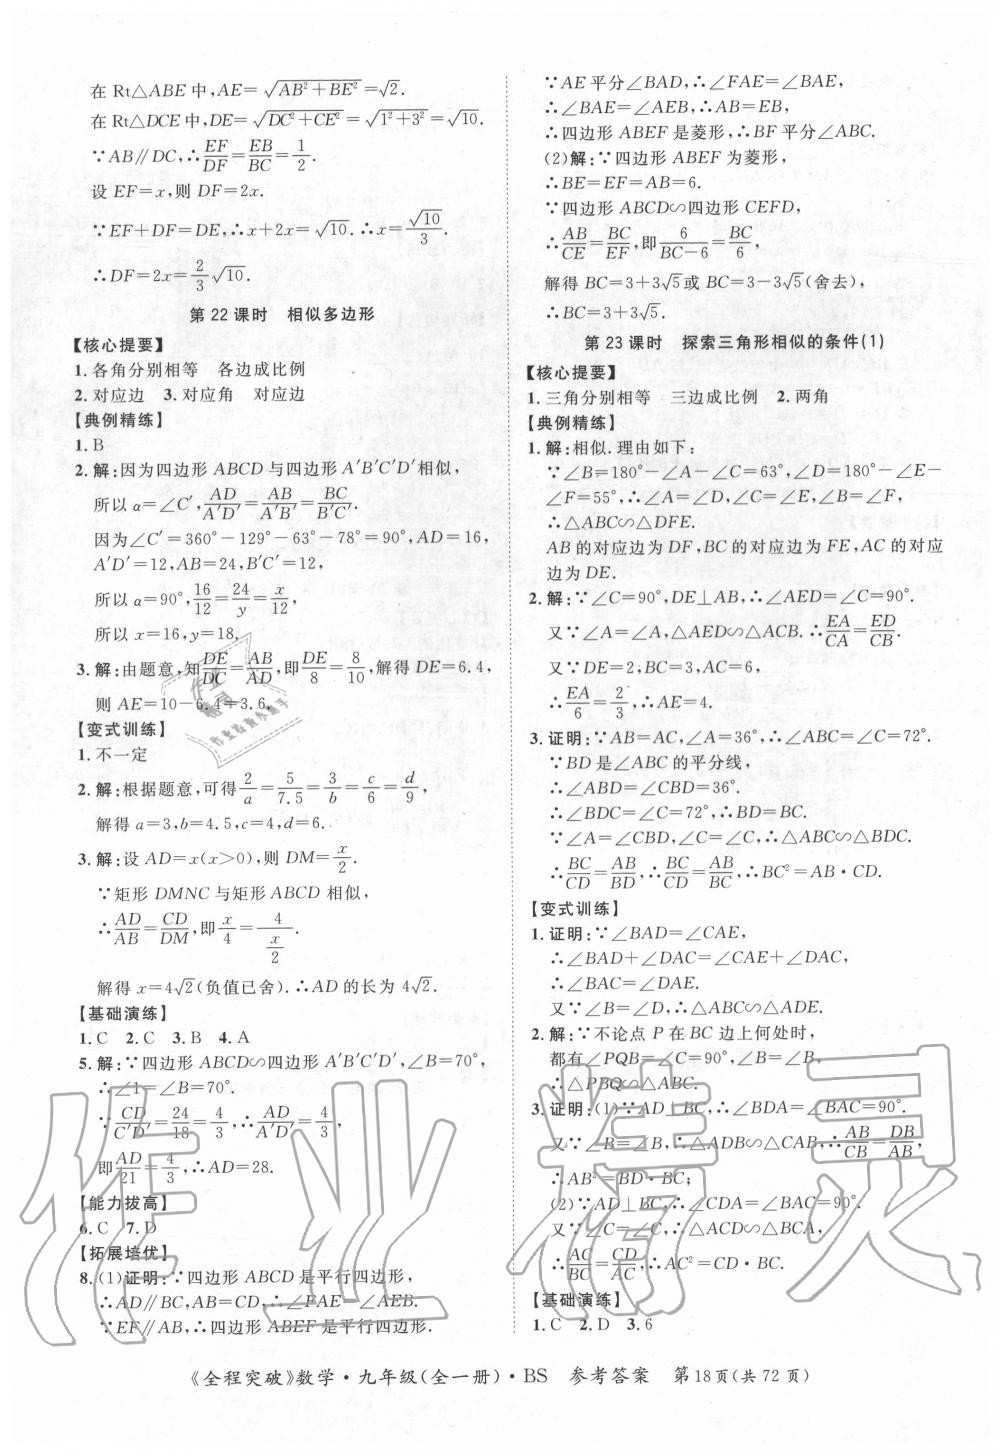 在 Rt△ABE 中,AE=√(AB²+BE²)=√2.
在 Rt△DCE 中,DE=√(DC²+CE²)=√(1²+3²)=√10.
∵AB∥DC,∴EF/DF=EB/BC=1/2.
设 EF=x,则 DF=2x.
∵EF+DF=DE,∴x+2x=√10.∴x=√10/3.
∴DF=2x=2/3√10.
第 22 课时 相似多边形
【核心提要】
1.各角分别相等 各边成比例
2.对应边 3.对应角 对应边
【典例精练】
1.B
2.解:因为四边形 ABCD 与四边形 A′B′C′D′相似,
所以 α=∠C′,AD/A′D′=AB/A′B′=BC/B′C′.
因为∠C′=360°-129°-63°-78°=90°,AD=16,
A′D′=12,AB=24,B′C′=12,
所以 α=90°,16/12=24/y=x/12,
所以 x=16,y=18.
3.解:由题意,知DE/DC=AB/AD,即DE/8=8/10,解得 DE=6.4,
则 AE=10-6.4=3.6.
【变式训练】
1.不一定
2.解:根据题意,可得2/a=5/7.5=3/b=c/6=d/9,
解得 a=3,b=4.5,c=4,d=6.
3.解:设 AD=x(x>0),则 DM=x/2.
∵矩形 DMNC 与矩形 ABCD 相似,
∴AD/AB=CD/DM,即x/4=4/(x/2)
解得 x=4√2(负值已舍).∴AD 的长为 4√2.
【基础演练】
1.C 2.C 3.B 4.A
5.解:∵四边形 ABCD∽四边形 A′B′C′D′,∠B=70°,
∴∠1=∠B=70°.
∵CD/C′D′=24/18=4/3,∴AD/A′D′=4/3,
即AD/21=4/3,∴AD=28.
【能力拔高】
6.C 7.D
【拓展培优】
8.(1)证明:∵四边形 ABCD 是平行四边形,
∴AD∥BC,AB=CD,∴∠FAE=∠AEB.
∵EF∥AB,∴四边形 ABEF 是平行四边形.
∵AE 平分∠BAD,∴∠FAE=∠BAE,
∴∠BAE=∠AEB,∴AB=EB,
∴四边形 ABEF 是菱形,∴BF 平分∠ABC.
(2)解:∵四边形 ABEF 为菱形,
∴BE=EF=AB=6.
∵四边形 ABCD∽四边形 CEFD,
∴AB/CE=BC/EF,即6/(BC-6)=BC/6,
解得 BC=3+3√5或 BC=3-3√5(舍去),
∴BC=3+3√5.
第 23 课时 探索三角形相似的条件(1)
【核心提要】
1.三角分别相等 三边成比例 2.两角
【典例精练】
1.解:相似.理由如下:
∵∠B=180°-∠A-∠C=63°,∠D=180°-∠E-
∠F=55°,∴∠A=∠D,∠C=∠E,∠B=∠F,
∴△ABC∽△DFE.
AB 的对应边为 DF,BC 的对应边为 FE,AC 的对应
边为 DE.
2.解:∵∠C=90°,DE⊥AB,∴∠AED=∠C=90°.
又∵∠A=∠A,△AED∽△ACB.∴EA/CA=ED/CB.
又∵DE=2,BC=3,AC=6,
∴EA/6=2/3,∴AE=4.
3.证明:∵AB=AC,∠A=36°,∴∠ABC=∠C=72°.
∵BD 是∠ABC 的平分线,
∴∠ABD=∠CBD=36°.
∴∠BDC=∠C=72°,∴BD=BC.
∵∠A=∠CBD,∠C=∠C,∴△ABC∽△BDC.
∴BC/CD=AB/BD,∴BC/CD=AB/BC,∴BC²=AB·CD.
【变式训练】
1.证明:∵∠BAD=∠CAE,
∴∠BAD+∠DAC=∠CAE+∠DAC,
∴∠BAC=∠DAE.
又∵∠B=∠D,∴△ABC∽△ADE.
2.解:∵不论点 P 在 BC 边上何处时,
都有∠PQB=∠C=90°,∠B=∠B,
∴△PBQ∽△ABC.
3.证明:(1)∵AD⊥BC,∴∠BDA=∠BAC=90°.
又∵∠B=∠B,∴△ABD∽△CAB,∴AB/CB=DB/AB,
∴AB²=BD·BC;
(2)∵AD⊥BC,∴∠CDA=∠BAC=90°.
又∵∠C=∠C,∴△ACD∽△BCA,
∴AC/BC=CD/AC,∴AC²=CD·BC.
【基础演练】
1.C 2.D 3.6
《全程突破》数学·九年级(全一册)·BS 参考答案 第18页(共 72 页)
作业精灵